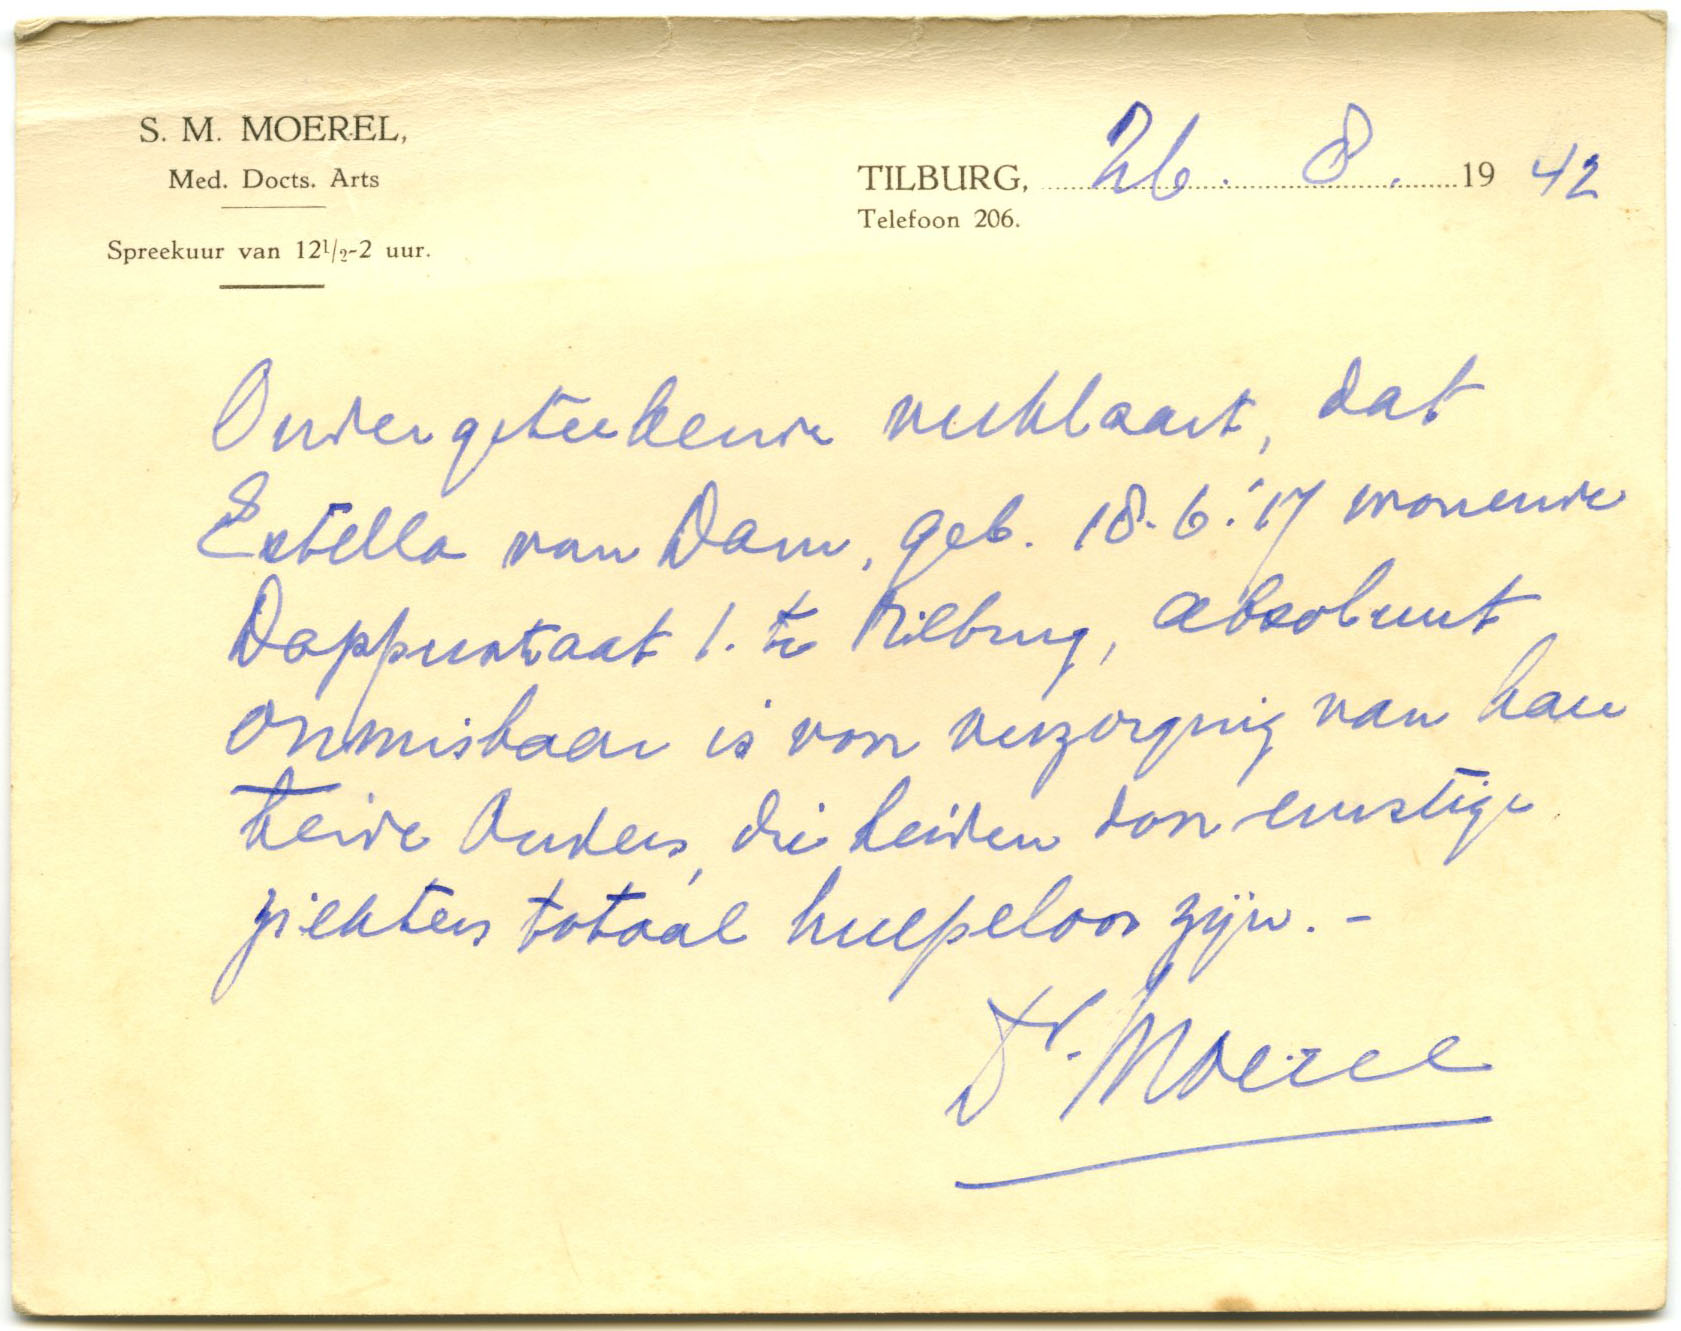 S. M. MOEREL,
Med. Docts. Arts
Spreekuur van 12½-2 uur.
TILBURG, 26. 8. 1942
Telefoon 206.
Ondergeteekende verklaart, dat
Estella van Dam, geb. 18-6-'17 wonende
Dapperstraat 1. te Tilburg, absoluut
onmisbaar is voor verzorging van haar
beide Ouders, die beiden door ernstige
ziektens totaal hulpeloos zijn. -
Dr. Moerel